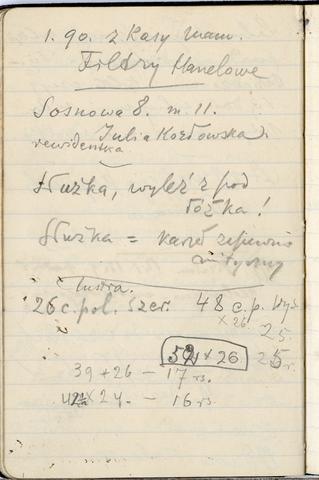 1. 90. z Kasy Mam.
Filtry Panelowe
Sosnowa 8. m 11.
Julia Kozłowska
rewidentka
Nużka, wyleź z pod
łóżka!
Nużka =
lustra.
26 c. pol. szer. 48 c. p. wys
× 26 25.
52 1/2 × 26 25 r.
39 + 26 — 17 rs.
× 24. — 16 rs.